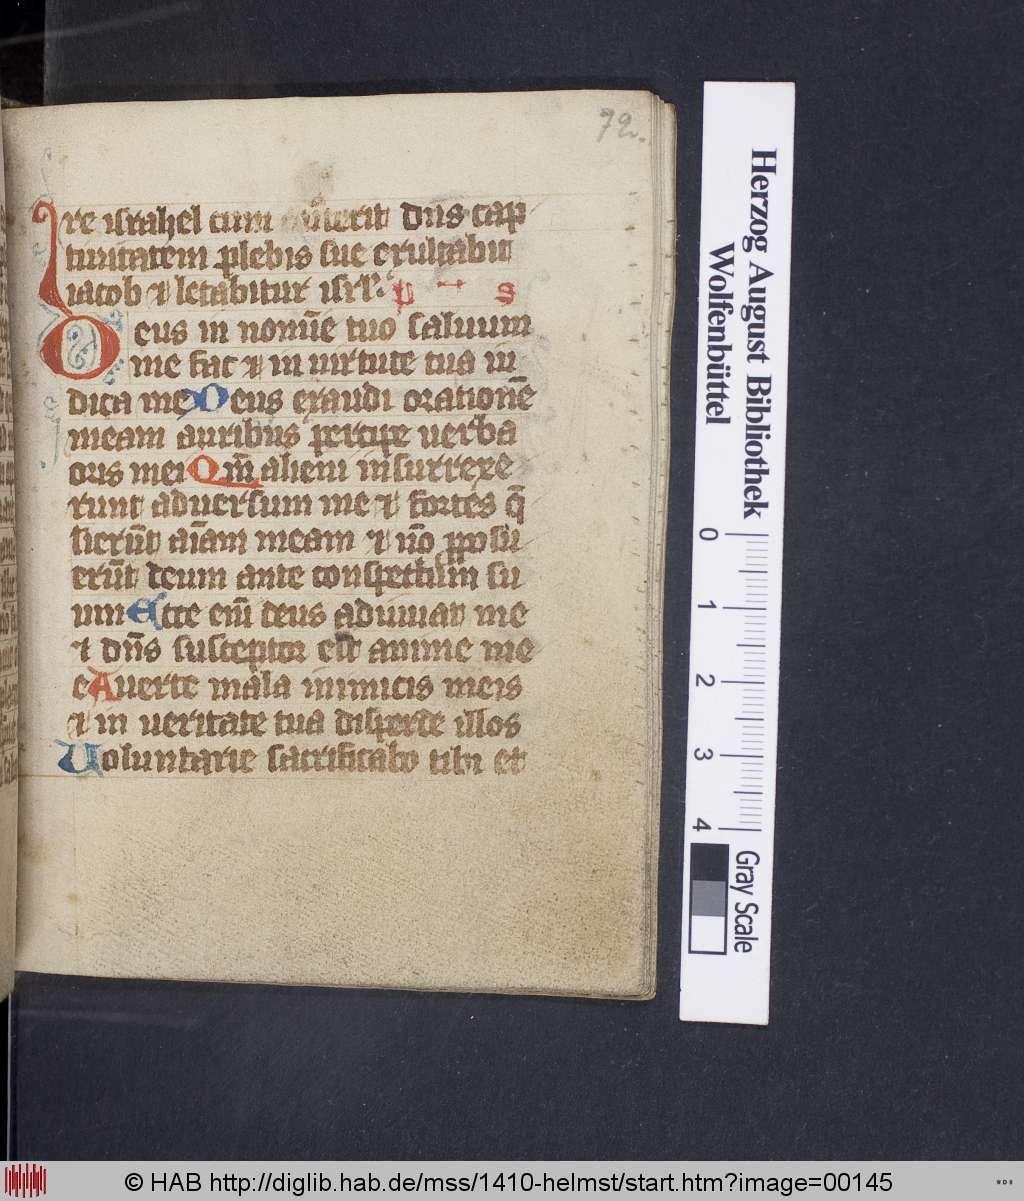 72.
Jre israhel cum dn̄s cap
tiuitatem plebis sue exultabit
iacob ⁊ letabitur isrl̄. p̄ s
Deus in nomīe tuo saluum
me fac ⁊ in uirtute tua iu
dica me Deus exaudi orationē
meam auribus percipe uerba
oris mei Qm̄ alieni insurrexe
runt aduersum me ⁊ fortes q̄
sierūt aīam meam ⁊ nō ꝓposu
erūt deum ante conspectum su
um Ecce eīm deus adiuuat me
⁊ dn̄s susceptor est anime me
e Auerte mala inimicis meis
⁊ in ueritate tua disperde illos
Uoluntarie sacrificabo tibi et
Herzog August Bibliothek
Wolfenbüttel
0 1 2 3 4
Gray Scale
© HAB http://diglib.hab.de/mss/1410-helmst/start.htm?image=00145